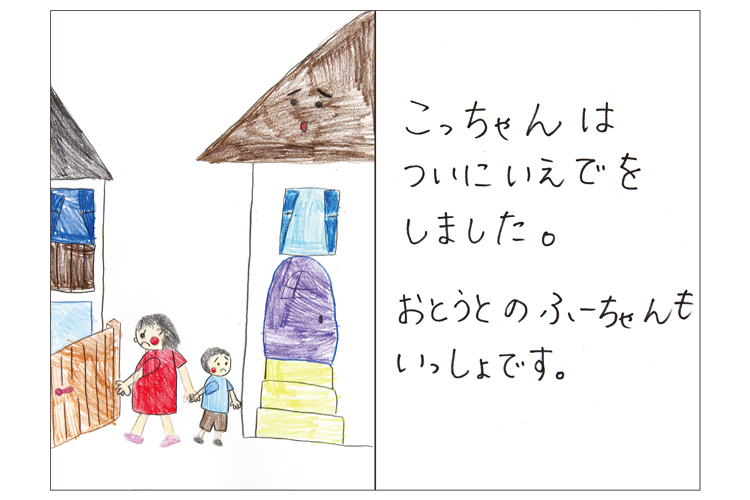 こっちゃんは
ついにいえでを
しました。
おとうとのふーちゃんも
いっしょです。